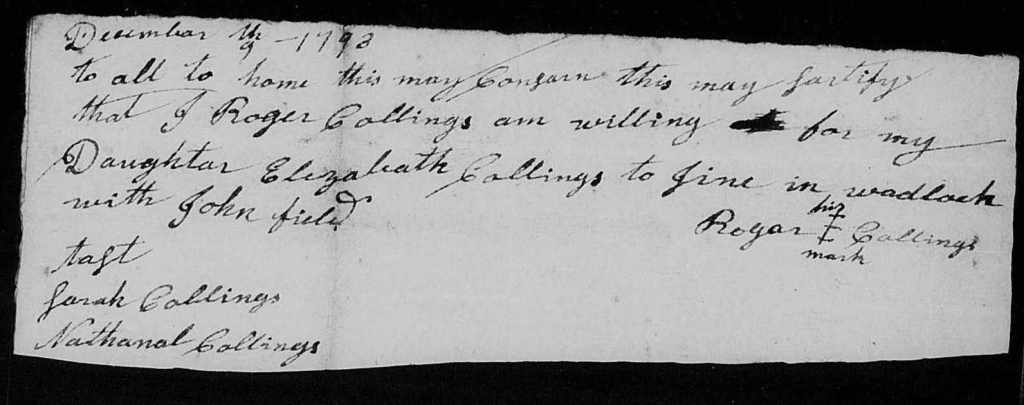 December 9th - 1793
to all to home this may Consarn this may Sartify
that I Roger Collings am willing for my
Daughtar Elezabath Collings to Jine in wadlock
with John field
Rogar his + Collings
mark
tast
Sarah Collings
Nathanal Collings